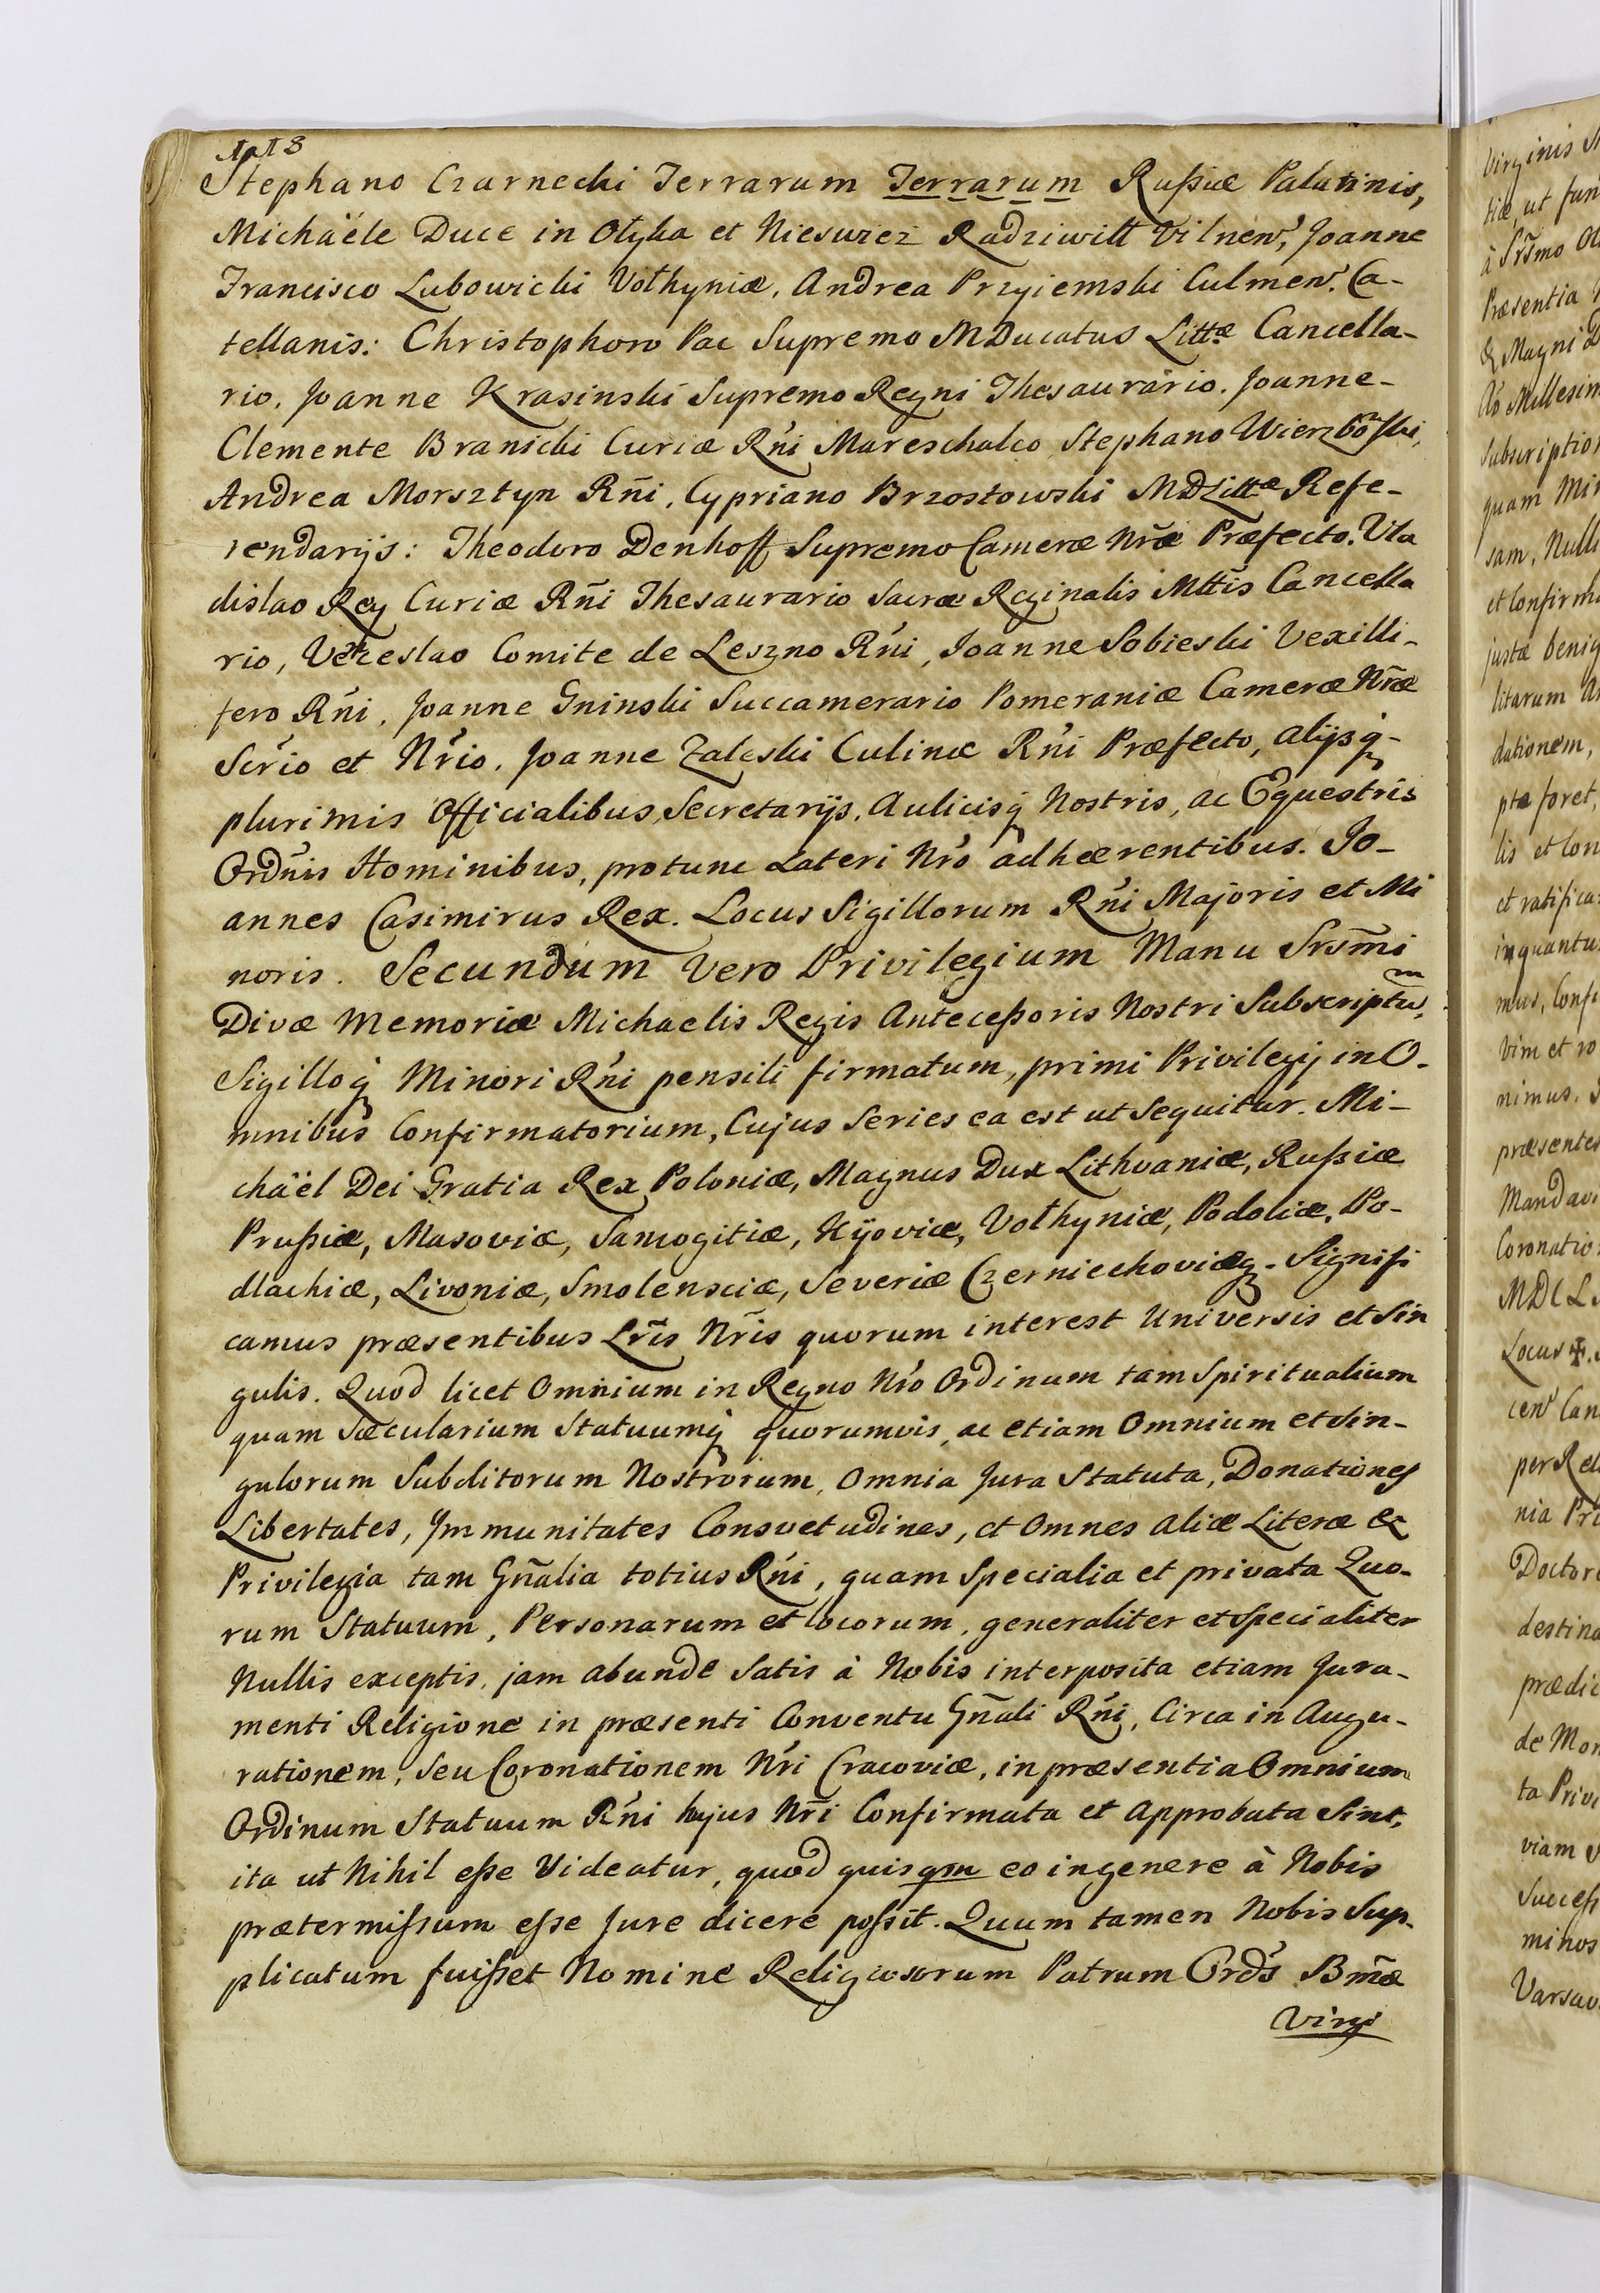 118
Stephano Czarnecki Terrarum Terrarum Rußiæ Palatinis,
Michäéle Duce in Ołyka et Nieswiez Radziwiłł Vilnen', Joanne
Francisco Lubowicki Vołhyniæ, Andrea Przyiemski Culmen'. Ca-
tellanis: Christophoro Pac Supremo MDucatus Littæ Cancella-
rio, Joanne Krasinski Supremo Regni Thesaurário. Joanne-
Clemente Branicki Curiæ Rńi Mareschalco, Stephano Wierzbôski,
Andrea Morsztyn Rñi, Cypriano Brzostowski MDLittæ Refe-
rendarijs: Theodoro Denhoff Supremo Cameræ Nr̃æ Præfecto. Vla
dislao Rey Curiæ Rñi Thesaurario Sacræ Reginalis Mttis Cancella
rio, Veceslao Comite de Leszno Rńi, Joanne Sobieski Vexilli-
fero Rńi, Joanne Gninski Succamerario Pomeraniæ Cameræ Nr̃æ
Scrio et Nŕio. Joanne Zaleski Culinæ Rńi Præfecto, alijsq́-
plurimis Officialibus, Secretarijs, Aulicisq́ Nostris, ac Equestris
Ordñis Hominibus, protunc Lateri Nŕo adhærentibus. Jo-
annes Casimirus Rex. Locus Sigillorum Rńi Majoris et Mi
noris. Secundum Vero Privilegium Manu Srs̃mi
Divæ Memoriæ Michaelis Regis Anteceßoris Nostri Subscriptũ,
Sigilloq́ Minori Rńi pensili firmatum, primi Privilegij in O-
mnibus Confirmatorium, Cujus Series ea est ut Sequitur. Mi-
chäel Dei Gratia Rex Poloniæ, Magnus Dux Lithvaniæ, Rußiæ
Prußiæ, Masoviæ, Samogitiæ, Kÿoviæ, Vołhyniæ, Podoliæ, Po-
dlachiæ, Livoniæ, Smolensciæ, Severiæ Czerniechoviæq́- Signifi
camus præsentibus Lr̃is Nr̃is quorum interest Universis et Sin
gulis. Quod licet Omnium in Regno Nŕo Ordinum tam Spiritualium
quam Sæcularium Statuumq́ quorumvis, ac etiam Omnium et Sin-
gulorum Subditorum Nostrorum, Omnia Jura Statuta, Donationes
Libertates, Jmmunitates Consvetudines, et Omnes aliæ Literæ &
Privilegia tam Gñalia totius Rńi, quam Specialia et privata Quo-
rum Statuum, Personarum et locorum, generaliter et Specialiter
Nullis exceptis, jam abunde Satis à Nobis interposita etiam Jura-
menti Religione in præsenti Conventu Gñali Rńi, Circa in Augu-
rationem, Seu Coronationem Nŕi Cracoviæ, in præsentia Omnium
Ordinum Statuum Rńi hujus Nr̃i Confirmata et Approbata Sint,
ita ut Nihil eße Videatur, quod quisqm eo in genere à Nobis
prætermißum eße Jure dicere poßit. Quum tamen Nobis Sup-
plicatum fuißet Nomine Religiosorum Patrum Ords Bm̃æ
Virgi
Virginis
tiæ, ut fun
à Srs̃mo
Præsentia
& Magni D
Aõ Millesim
Subscription
quam Min
sam, Null
et Confirma
justæ benig
litarum
dationem,
ptæ foret,
lis et Con
et ratifica
inquantu
mus, Confi
Vim et ro
nimus.
præsentes
Mandavi
Coronation
MDCL
Locus ✠.
cen' Can
per Rel
nia Pri
Doctor
destina
prædic
de Mon
ta Privi
viam
Succeß
minos
Varsav